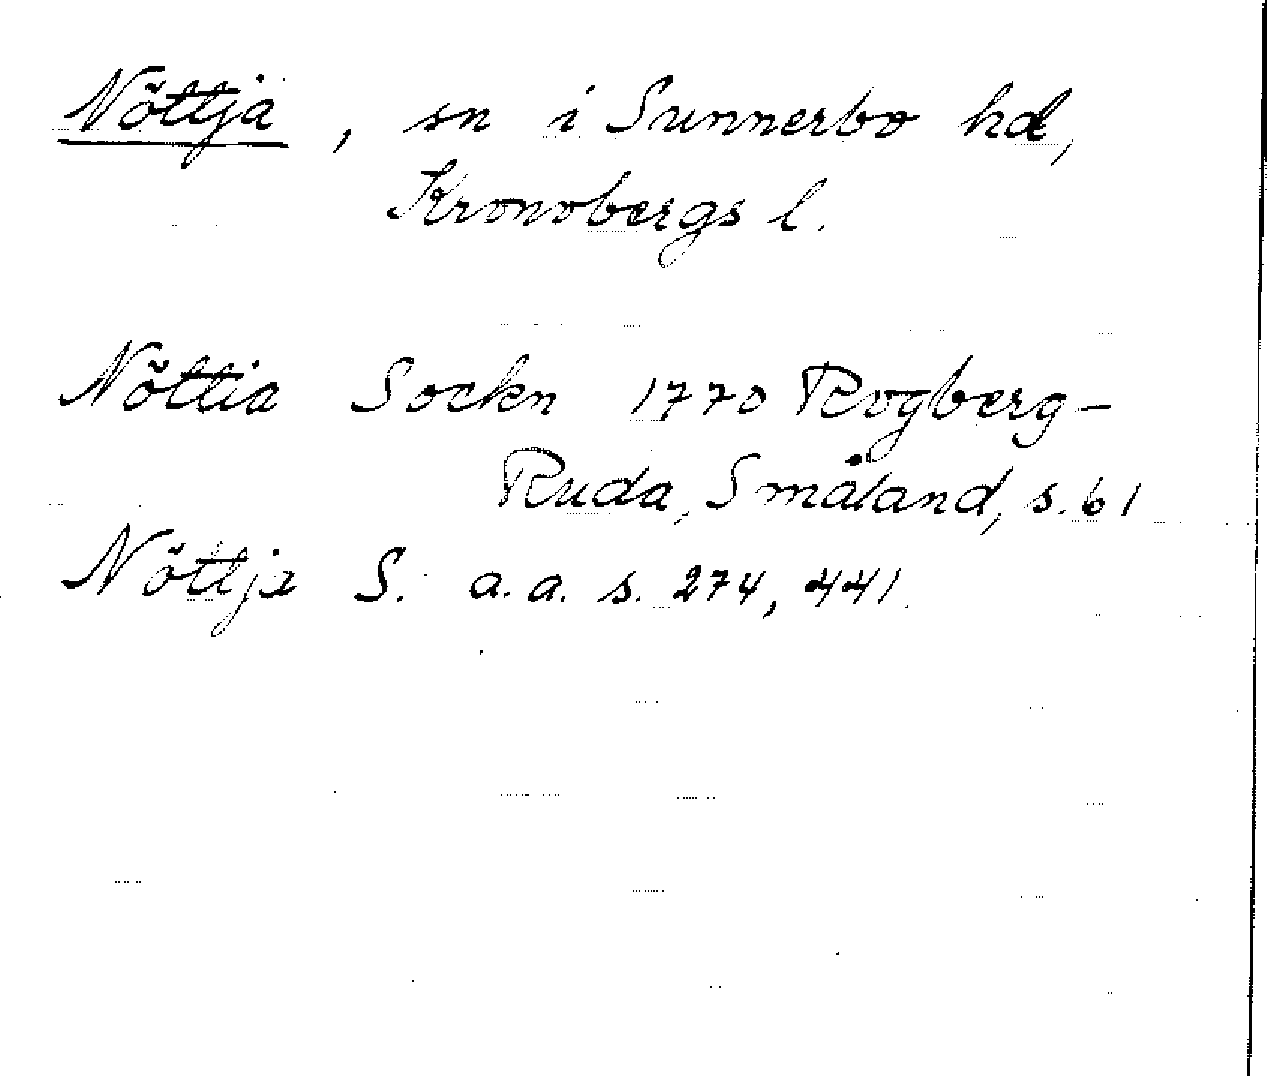 Nöttja, sn i Sunnerbo hd,
Kronobergs l.
Nöttia Sockn 1770 Rogberg-
Ruda, Småland, s. 61
Nöttja S. a.a. s. 274, 441.